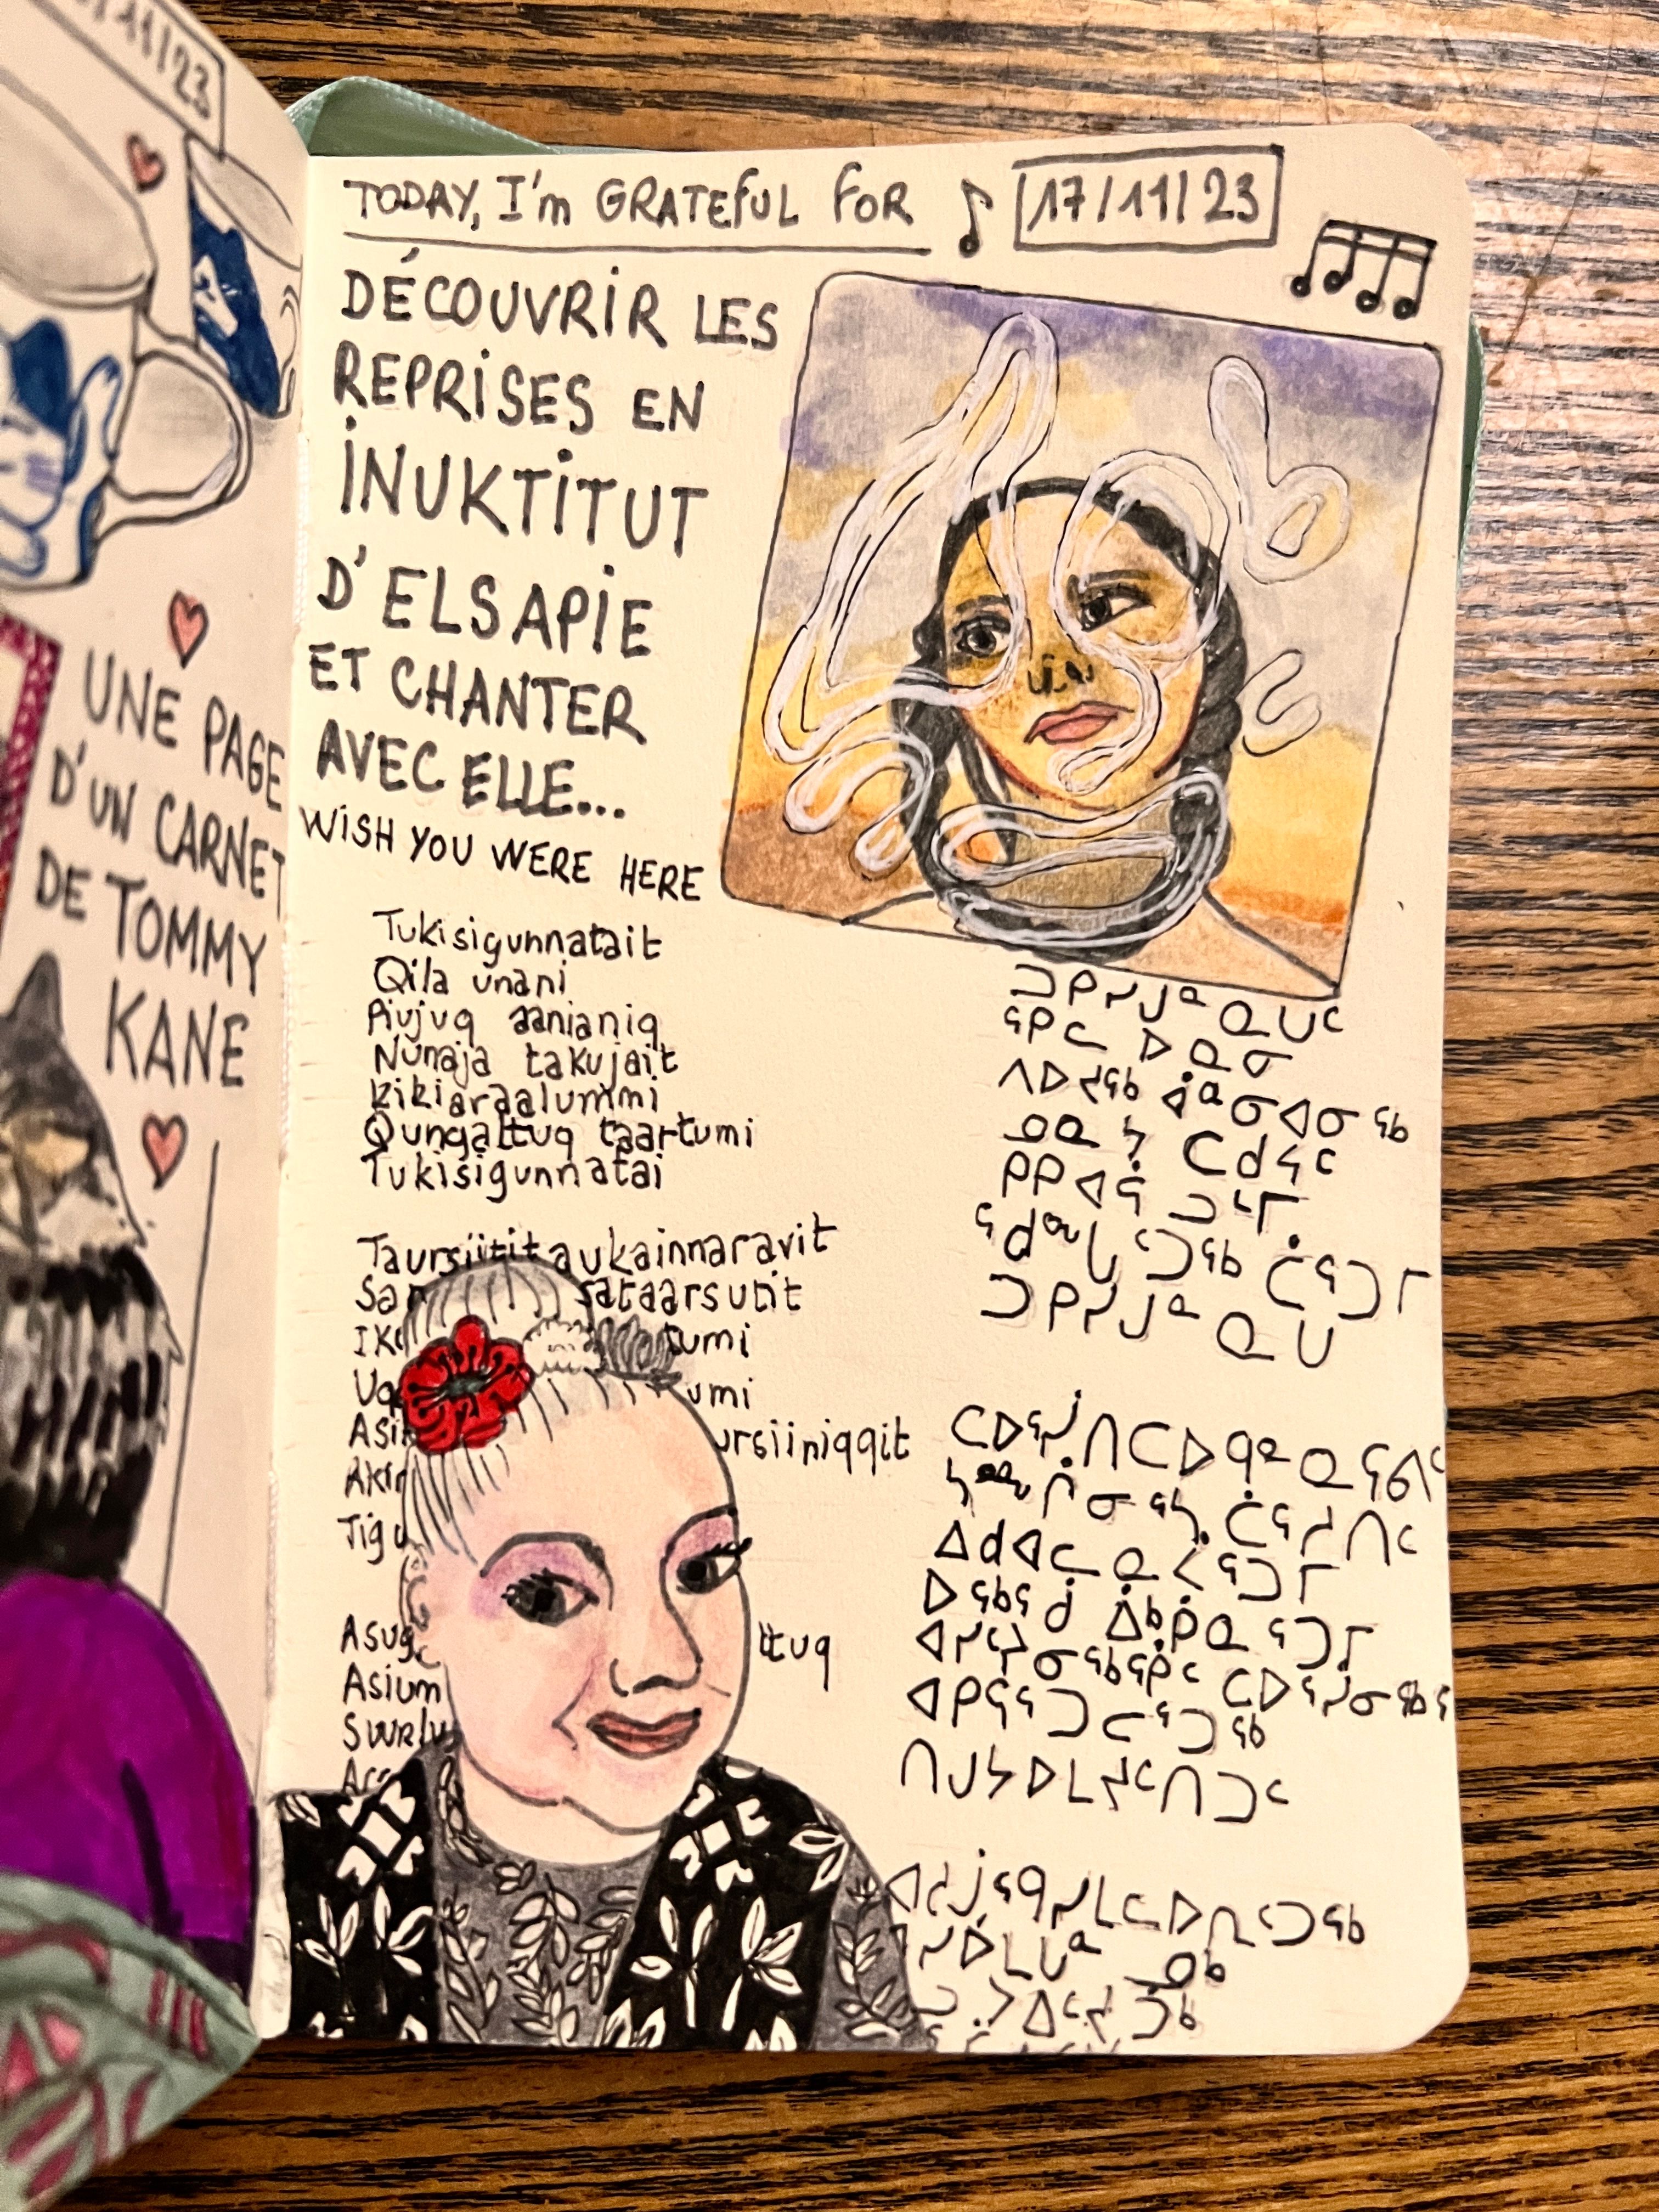 /11/23
UNE PAGE
D'UN CARNET
DE TOMMY
KANE
TODAY, I'm GRATEFUL FOR 17/11/23
DÉCOUVRIR LES
REPRISES EN
INUKTITUT
D'ELSAPIE
ET CHANTER
AVEC ELLE...
WISH YOU WERE HERE
Tukisigunnatait
Qila unani
Piujuq aanianiq
Nunaja takujait
Kikiaraalummi
Qungattuq taartumi
Tukisigunnatai
Taursiitit aukainnaravit
Sa sataarsutit
Ik tumi
Uq umi
Asi ursiiniqqit
Aki
Tigu
Asug ttuq
Asium
ᑐᑭᓯᒍᓐᓇᑌᑦ
ᕿᓚ ᐅᓇᓂ
ᐱᐅᔪᖅ ᐋᓐᓂᐊᓂᖅ
ᓄᓇ ᔭ ᑕᑯᔭᑦ
ᑭᑭᐊᕌᓗᒻᒥ
ᖁᖕᒐᑦᑐᖅ ᑖᕐᑐᒥ
ᑐᑭᓯᒍᓐᓇᑌ
ᑕᐅᕐᓰᑎᑕᐅᑫᓐᓇᕋᕕᑦ
ᐃᑯᐊᓚᓇᐹᕐᑐᒥ
ᐅᖃᕐᑰ ᐄᒃᑮᓇᕐᑐᒥ
ᐊᑭᕋᕐᑐᓕᕐᑐᖅ
ᑎᒍᔭᐅᒪᔪᑦᑎᑐᑦ